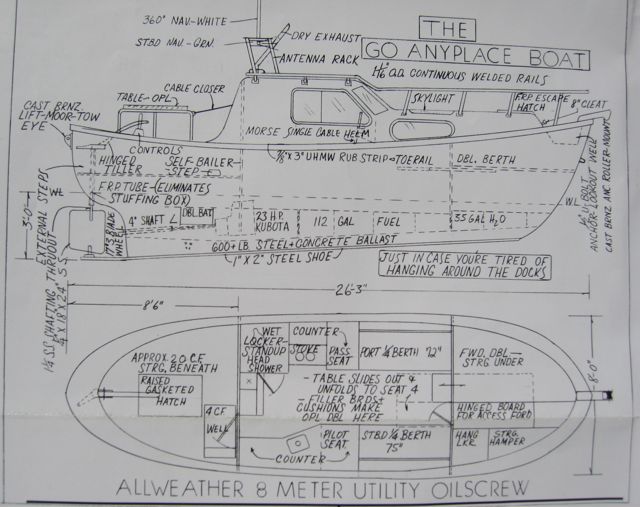 360° NAV.-WHITE
DRY EXHAUST
STBD NAV.-GRN.
ANTENNA RACK
THE
GO ANYPLACE BOAT
O.D. CONTINUOUS WELDED RAILS
CABLE CLOSER
TABLE-OPL
SKYLIGHT
F.R.P. ESCAPE
HATCH
8" CLEAT
CAST BRNZ.
LIFT-MOOR-TOW
EYE
MORSE SINGLE CABLE HELM
CONTROLS
HINGED
TILLER
SELF-BAILER
STEP
X 3" UHMW RUB STRIP
TOERAIL
DBL. BERTH
F.R.P. TUBE-(ELIMINATES
STUFFING BOX)
W.L.
W.L.
EXTERNAL STEPS
3'-0"
4" SHAFT
DBL BAT
23 H.P.
KUBOTA
112 GAL FUEL
55 GAL H2O
17" 3 BLADE
WHEEL
600+ LB STEEL+CONCRETE BALLAST
1" X 2" STEEL SHOE
U BOLT
ANCHOR-LOOKOUT WELL
CAST BRNZ ANC ROLLER-MOUNT
JUST IN CASE YOU'RE TIRED OF
HANGING AROUND THE DOCKS
26'-3"
8'6"
S.S. SHAFTING THRUOUT
X 18" X 24" S.S.
APPROX. 20 C.F.
STRG. BENEATH
RAISED
GASKETED
HATCH
4 CF
WELL
WET
LOCKER-
STANDUP
HEAD
SHOWER
COUNTER
STOVE
PASS.
SEAT
PORT ¼ BERTH 72"
FWD. DBL-
STRG. UNDER
8'-0"
- TABLE SLIDES OUT &
UNFOLDS TO SEAT 4
- FILLER BRDS+
CUSHIONS MAKE
OPL DBL HERE
HINGED BOARD
FOR ACCESS FORD
PILOT
SEAT
COUNTER
STBD ¼ BERTH
75"
HANG
LKR.
STRG.
HAMPER
ALLWEATHER 8 METER UTILITY OILSCREW